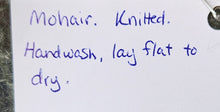 Mohair. Knitted.
Handwash, lay flat to
dry.